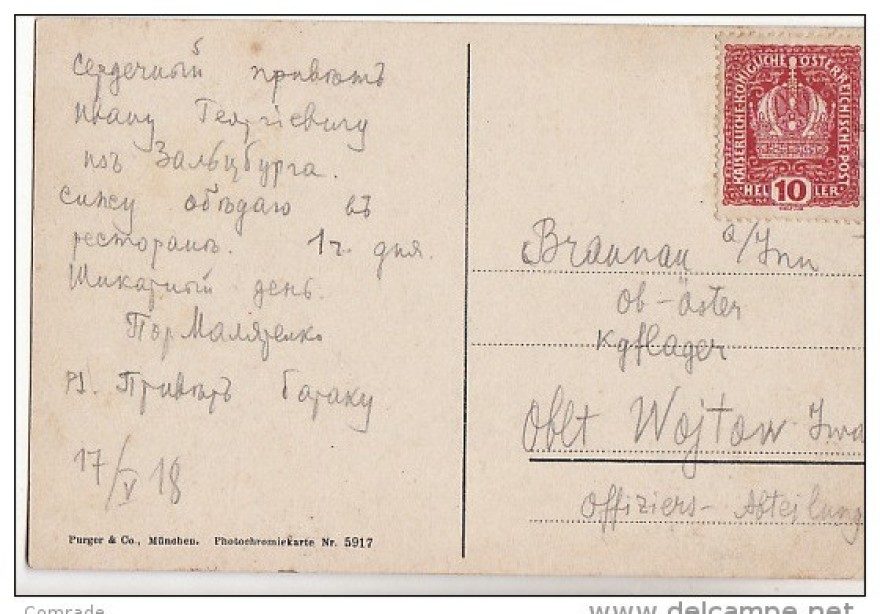 Сердечный привѣтъ
Ивану Георгіевичу
изъ Зальцбурга.
Сижу обѣдаю въ
ресторанѣ. 1 ч. дня.
Шикарный день.
Пор Маляренко
PS. Привѣтъ бараку
17/V 18
Purger & Co., München. Photochromiekarte Nr. 5917
KAISERLICHE KÖNIGLICHE ÖSTERREICHISCHE POST
HEL 10 LER
Braunau a/Inn
Ob-Öster
Kgflager
Oblt Wojtow Iwa
Offiziers-Abteilung
Comrade
www.delcampe.net